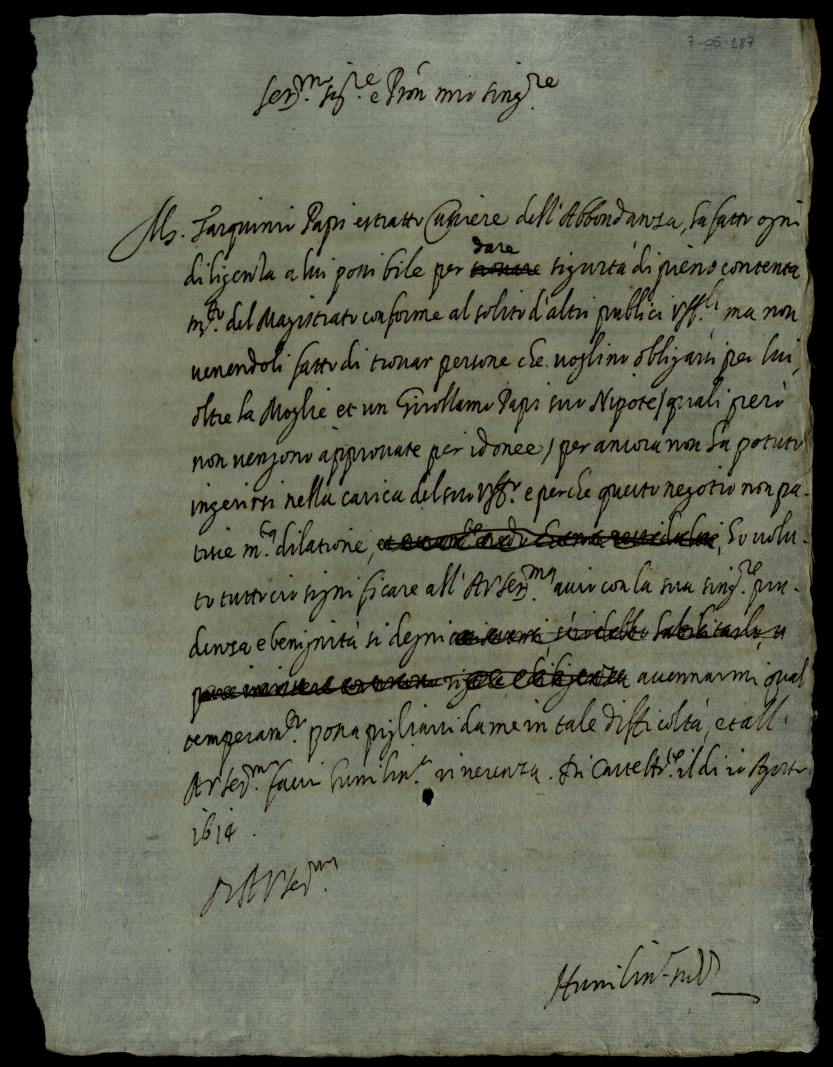 7-05-287
Ser.mo Sig.re e Pron mio sing.re
M. Tarquinio Papi estratto Camere dell'Abbondanza, ha fatto ogni
dare
diligenza a lui possibile per trovare sigurtà di pieno contenta
m.to del Magistrato conforme al solito d'altri publici Uff.li ma non
venendoli fatto di trovar persone che voglino obligarsi per lui,
oltre la Moglie et un Girollamo Papi suo Nipote / quali però
non vengono approvate per idonee / per ancora non ha potuto
ingerirsi nella carica del suo Uff.o e perche questo negotio non pa-
tisce m.ta dilatione, ho volu-
to tutto ciò significare all'A V Ser.ma acciò con la sua sing.re pru-
denza e benignità si degni
accennarmi qual
temperam.to possa pigliarsi da me in tale difficoltà, et all'
A V Ser.ma facci humilm.te riverenza. Di Castell. il di 10 Agosto
1614.
Di A V Ser.ma
Humiliss.